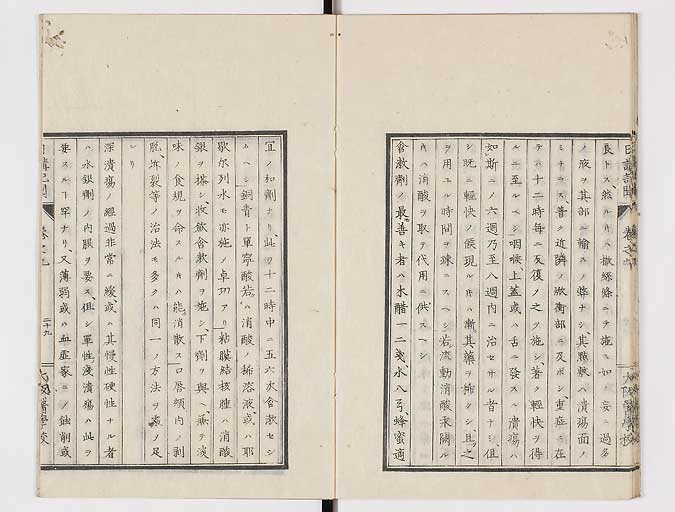 日講記聞 卷之九 大阪醫學校
長トス、然ルニハ撒縷條ニテ施ス如ク妄ニ過多
ノ液ヲ其部ニ輸スノ弊ナシ、其點軟ハ潰瘍面ノ
ミナラス、普ク近隣ノ焮衝部ニ及ホシ、重症ニ在
テハ十二時毎ニ反復ノ之ヲ施シ、著ク輕快ヲ得
ルニ至ルヘシ咽喉上蓋或ハ舌ニ發スル潰瘍ハ
如斯ニノ六週乃至八週内ニ治セサル者ナシ、但
シ既ニ輕快ノ候現ルキハ漸其藥ヲ稀クシ、且之
ヲ用エル時間ヲ疎ニスヘシ、若流動消酸汞闕ル
キハ消酸ヲ取テ代用ニ供スヘシ
含漱劑ノ最善キ者ハ木醋一二戔、水八弓、蜂蜜適
宜ノ和劑ナリ、此ヲ十二時中ニ五六次含漱セシ
ムヘシ銅青ト單寧酸若ハ消酸ノ稀溶液或ハ耶
歇尓列水モ亦施ノ卓功アリ、粘膜結核腫ハ消酸
銀ヲ搽シ、收斂含漱劑ヲ施シ、下劑ヲ與ヘ、無味淡
味ノ食規ヲ命スルキハ能消散ス口唇頰内ノ剥
脱、坼裂等ノ治法モ多クハ同一ノ方法ヲ以ノ足
レリ
深潰瘍ノ經過非常ニ緩、或ハ其慢性硬性ナル者
ハ水銀劑ノ内服ヲ要ス、但シ單性淺潰瘍ハ此ヲ
要スルヿ罕ナリ、又薄弱或ハ血虛家ニノ蝕削或
日講記聞 卷之九 二十九 大阪醫學校